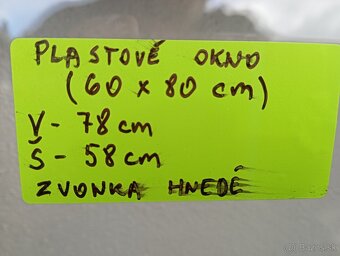 PLASTOVÉ OKNO
(60 x 80 cm)
V - 78 cm
Š - 58 cm
ZVONKA HNEDÉ
© Bazos.sk